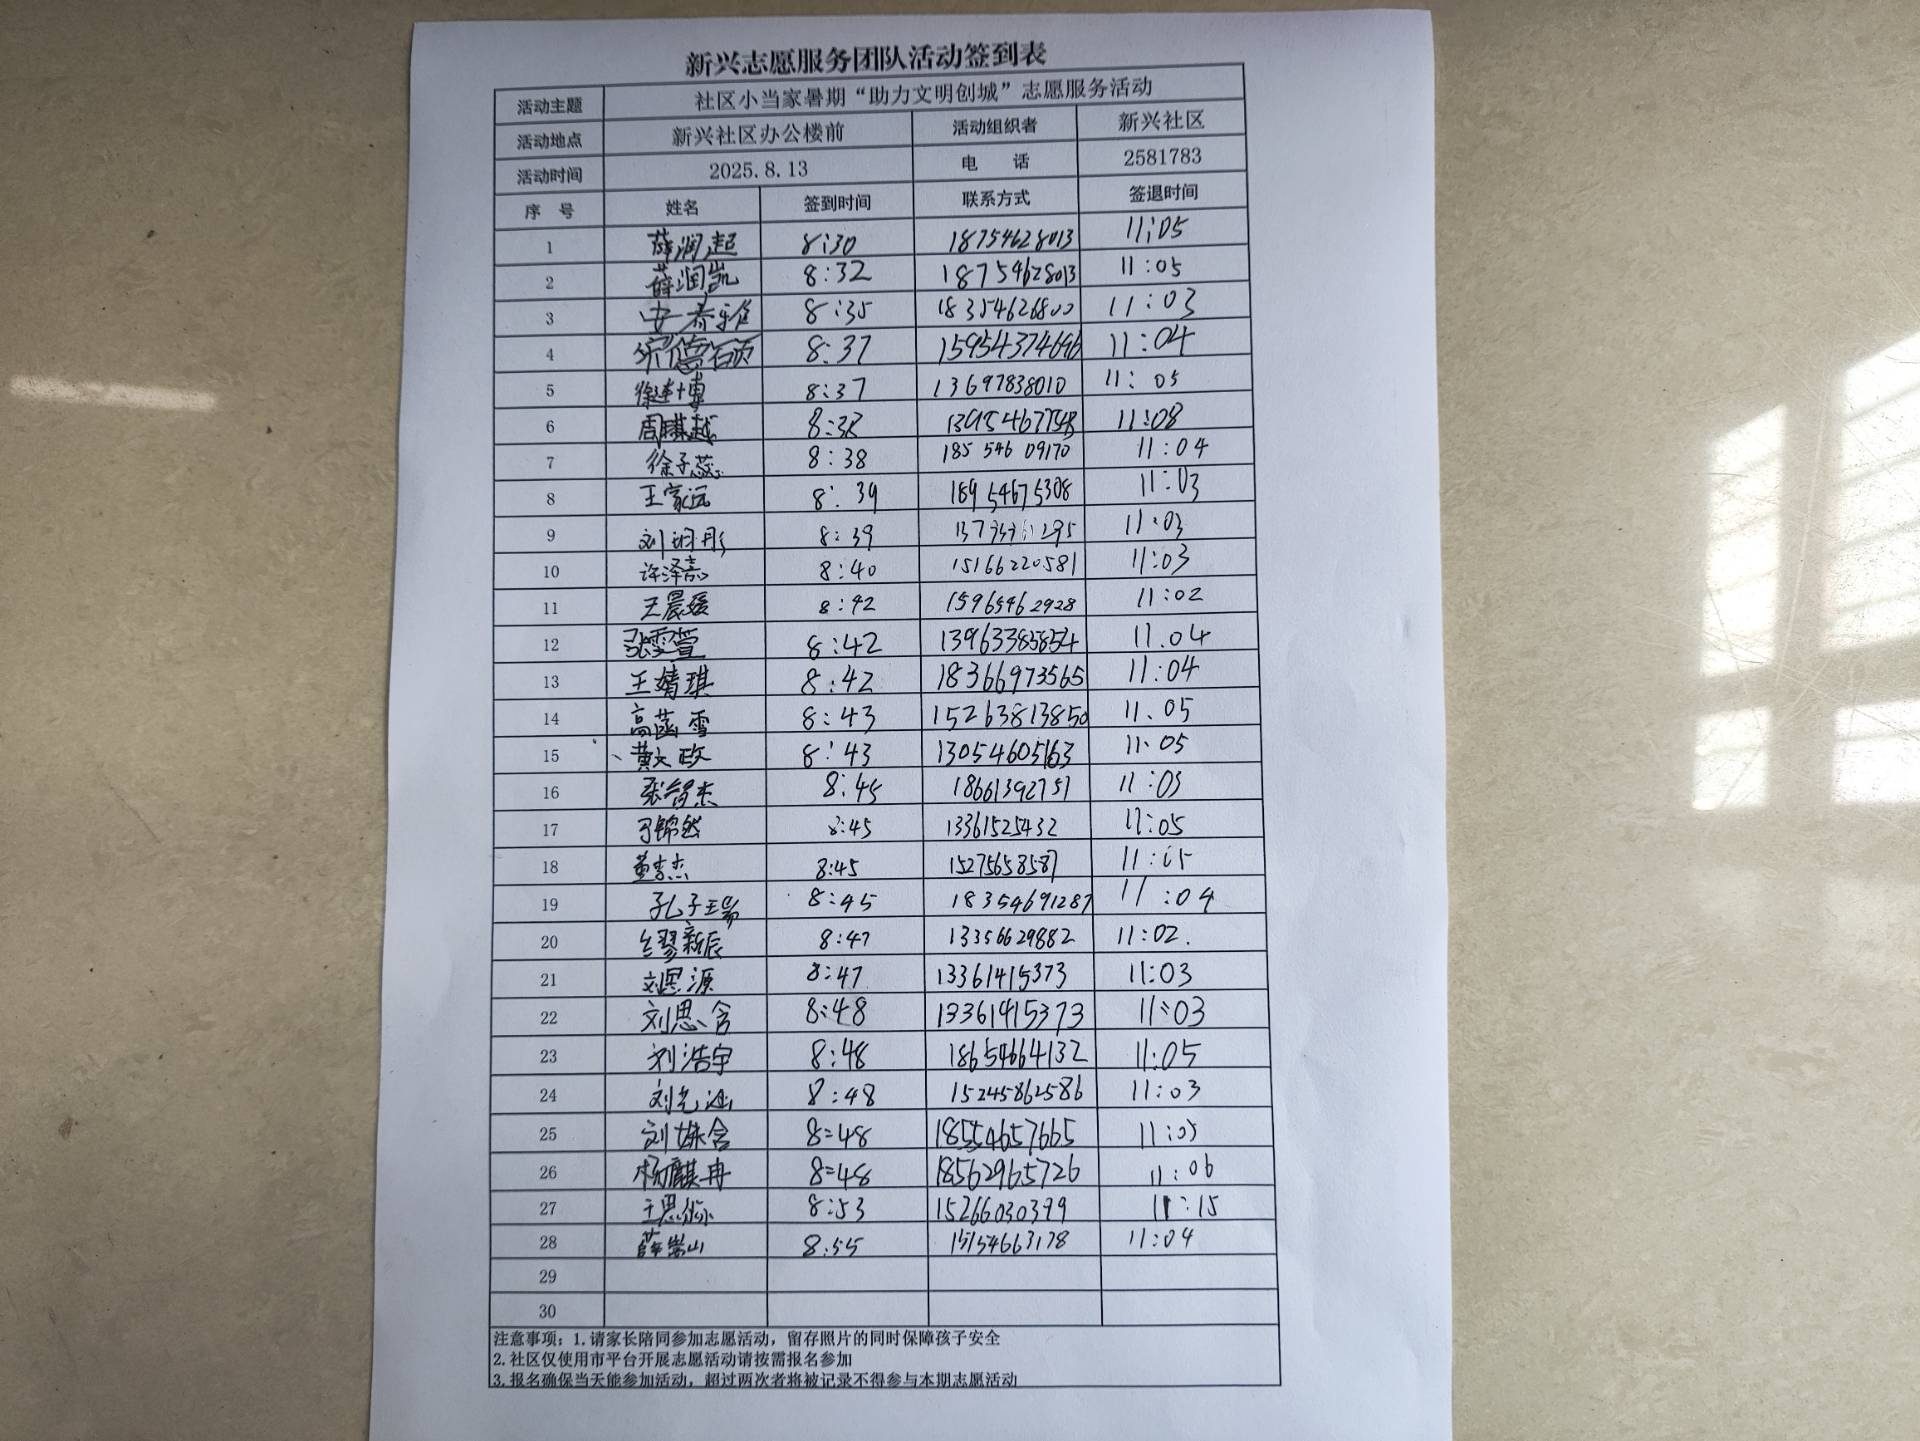 新兴志愿服务团队活动签到表
活动主题 社区小当家暑期“助力文明创城”志愿服务活动
活动地点 新兴社区办公楼前 活动组织者 新兴社区
活动时间 2025.8.13 电 话 2581783
序 号 姓名 签到时间 联系方式 签退时间
1 薛润起 8:30 18754628013 11:05
2 薛润凯 8:32 18754628013 11:05
3 8:35 18354626800 11:03
4 8:37 15954374696 11:04
5 8:37 13697838010 11:05
6 周麒越 8:38 11:08
7 徐子蕊 8:38 185 546 09170 11:04
8 王家远 8:39 18954675308 11:03
9 刘玥彤 8:39 11:03
10 许泽嘉 8:40 15166220581 11:03
11 王晨媛 8:42 15965462928 11:02
12 张雯萱 8:42 13963385854 11.04
13 王婧琪 8:42 18366973565 11:04
14 高菡雪 8:43 15263813850 11.05
15 黄文政 8:43 13054605163 11.05
16 张智杰 8:45 18661392751 11:05
17 于锦然 8:45 13361525432 11:05
18 8:45 15275658587 11:05
19 孔子玚 8:45 18354691287 11:04
20 缪新辰 8:47 13356629882 11:02.
21 刘思源 8:47 13361415373 11:03
22 刘思含 8:48 13361415373 11:03
23 刘浩宇 8:48 18654664132 11:05
24 8:48 15245862586 11:03
25 刘姝含 8=48 18554657665 11:05
26 杨麒冉 8=48 18562965726 11:06
27 8:53 15266030399 11:15
28 薛嵩山 8:55 15154663178 11:04
29
30
注意事项：1.请家长陪同参加志愿活动，留存照片的同时保障孩子安全
2.社区仅使用市平台开展志愿活动请按需报名参加
3.报名确保当天能参加活动，超过两次者将被记录不得参与本期志愿活动